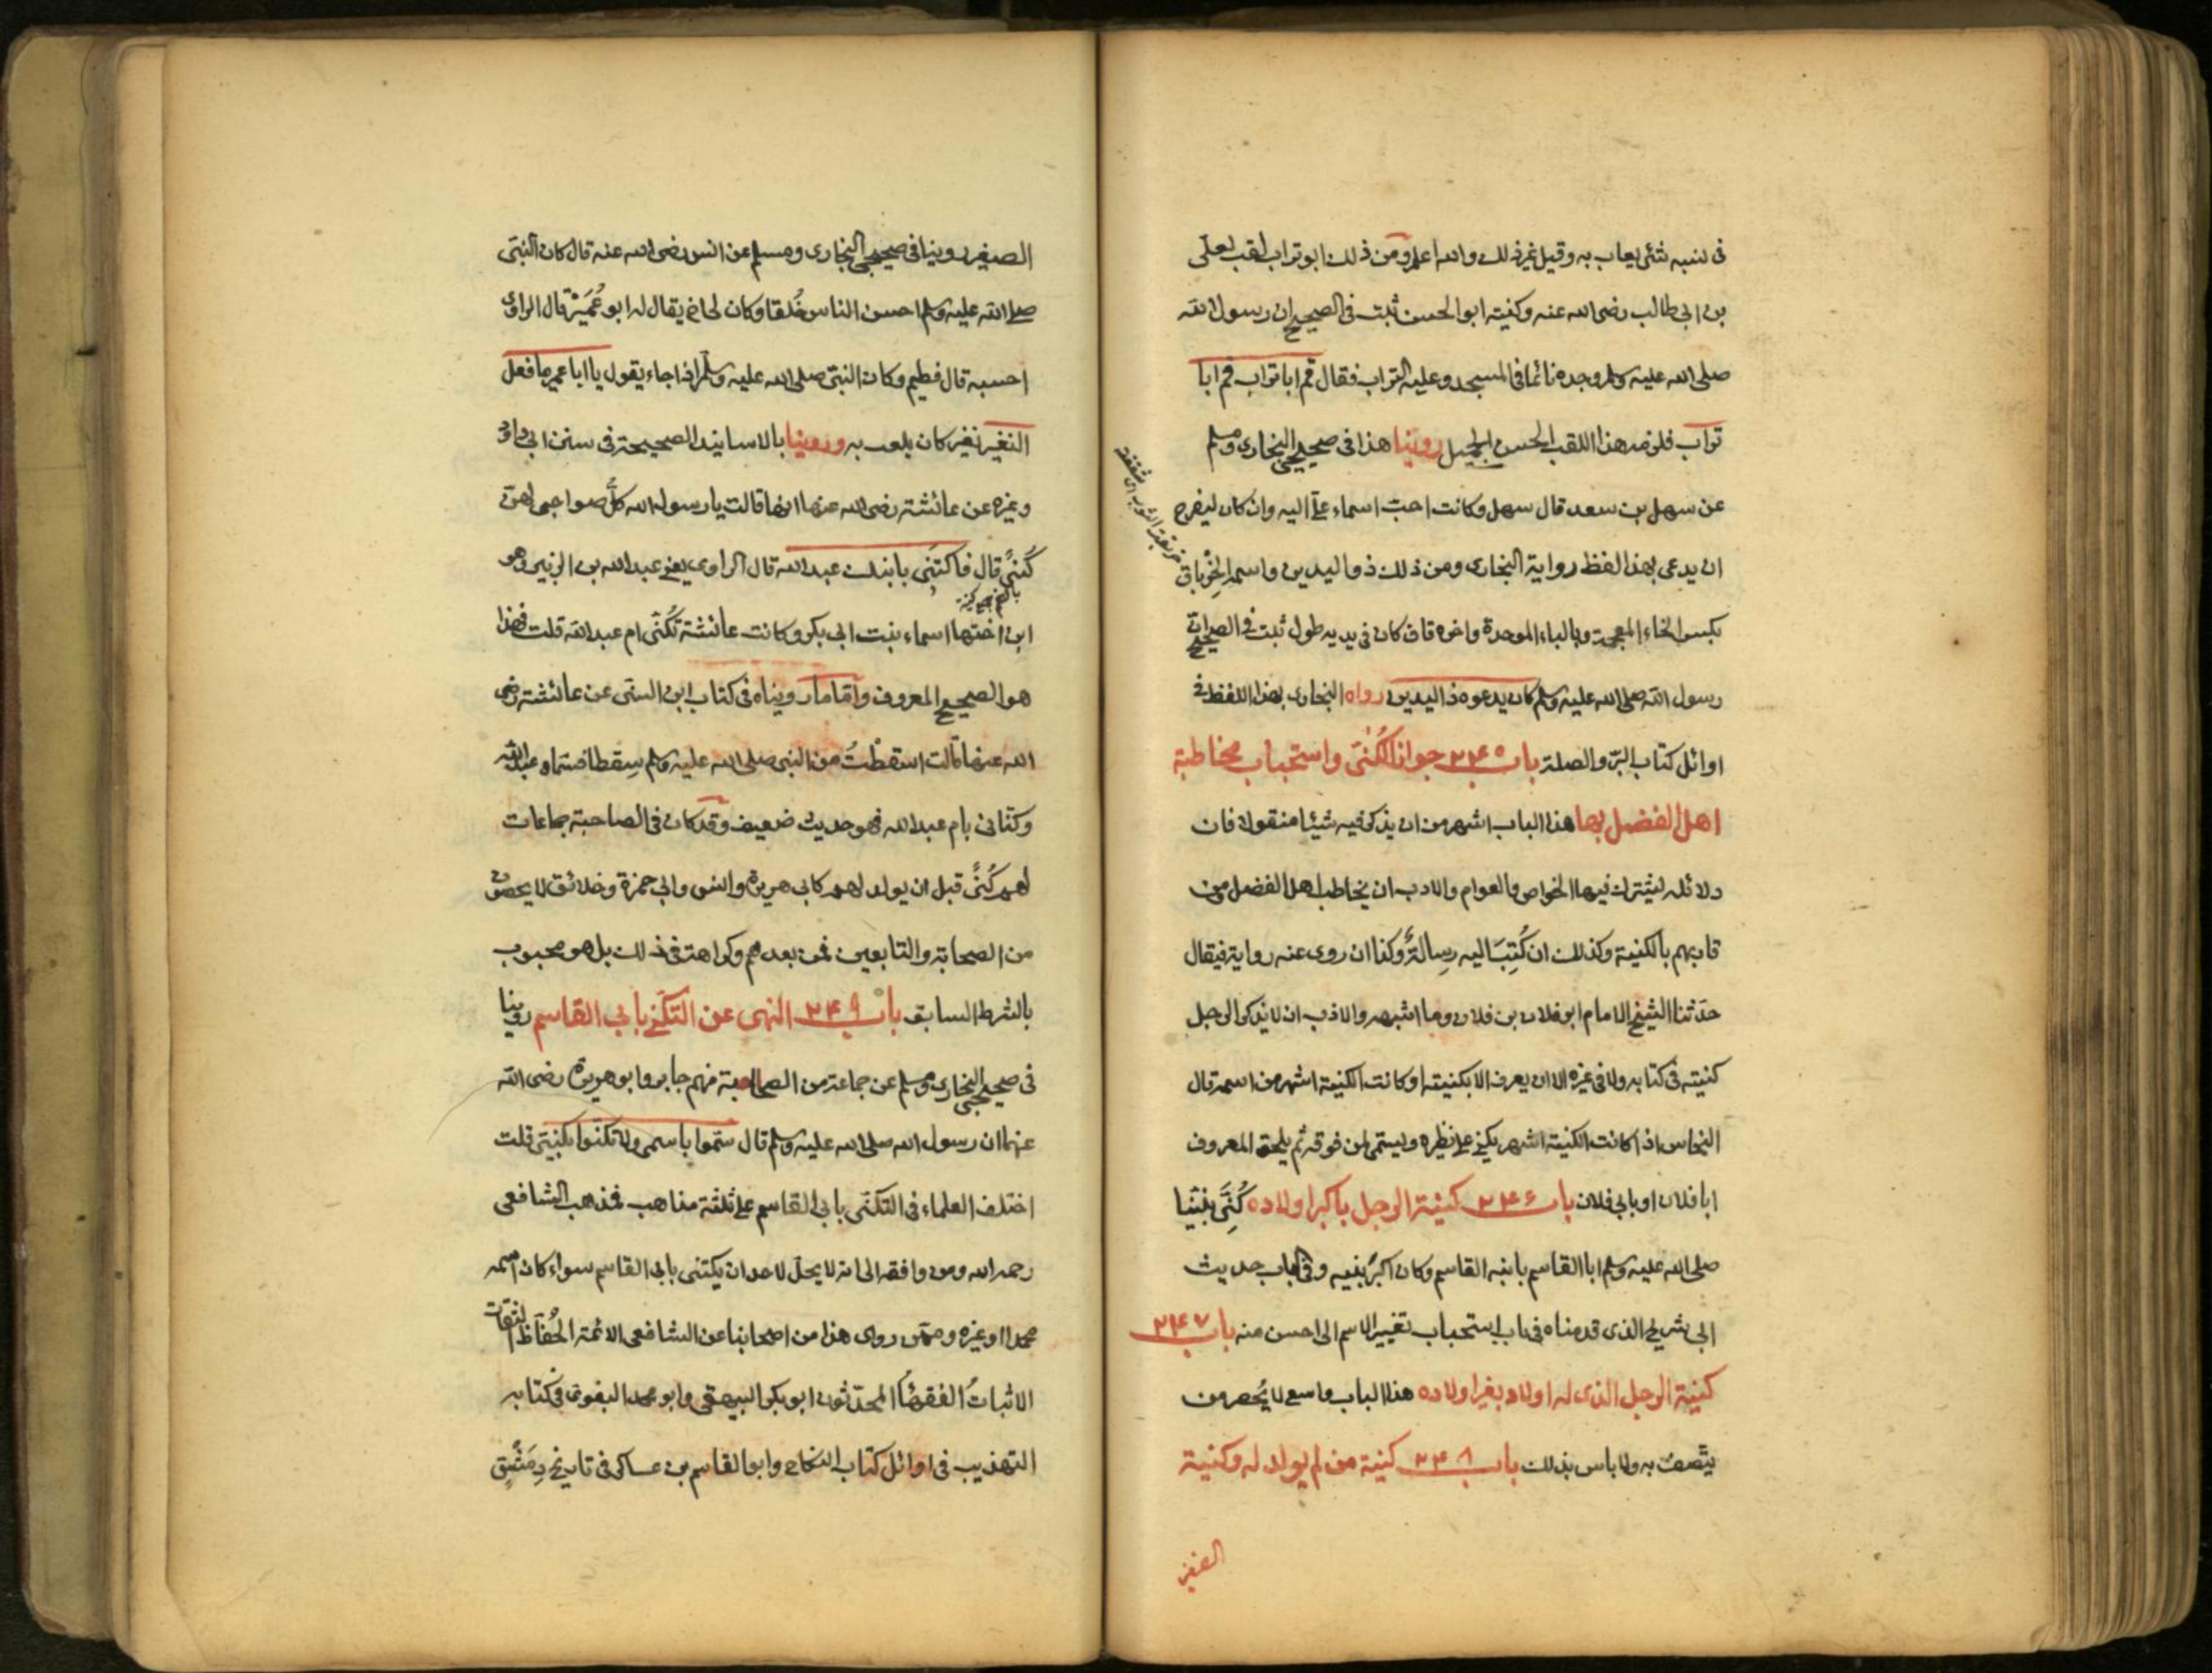 فى نسبه شئ يعاب به وقيل غير ذلك والله اعلم ومن ذلك ابو تراب لقب لعلى
بن ابى طالب رضى الله عنه وكنيته ابو الحسن ثبت فى الصحيح ان رسول الله
صلى الله عليه وسلم وجده نائما فى المسجد وعليه التراب فقال قم ابا تراب قم ابا
تراب فلزمه هذا اللقب الحسن الجميل روينا هذا فى صحيحى البخارى ومسلم
عن سهل بن سعد قال سهل وكانت احبّ اسماء علىّ اليه وان كان ليفرح
ان يدعى بهذا لفظ رواية البخارى ومن ذلك ذو اليدين واسمه الخِرْباق
بكسر الخاء المعجمة وبالباء الموحدة واخره قاف كان فى يديه طول ثبت فى الصحيح ان
رسول الله صلى الله عليه وسلم كان يدعوه ذا اليدين رواه البخارى بهذا اللفظ فى
اوائل كتاب البرّ والصلة باب ٢٤٥ جواز الكُنَى واستحباب مخاطبة
اهل الفضل بها هذا الباب اشهر من ان يذكر فيه شيئا منقولا فان
دلائله ليشترك فيها الخواص والعوام والادب ان يخاطب اهل الفضل من
قاربهم بالكنية وكذلك ان كُتِبَ اليه رِسالةٌ وكذا ان روى عنه رواية فيقال
حدّثنا الشيخ الامام ابو فلان بن فلان وما اشبهه والادب ان لا يذكر الرجل
كنيته فى كتابه ولا فى غيره الا ان يعرف الا بكنيته او كانت الكنية اشهر من اسمه قال
النحاس اذا كانت الكنية اشهر يكنى على نظيره ويسمى لمن فوقه ثم يلحق المعروف
ابا فلان او بابى فلان باب ٢٤٦ كنية الرجل باكبر اولاده كُنِّىَ نبيّنا
صلى الله عليه وسلم ابا القاسم بابنه القاسم وكان اكبرُ بنيه وفى الباب حديث
ابى شريح الذى قدمناه فى باب استحباب تغيير الاسم الى احسن منه باب ٢٤٧
كنية الرجل الذى له اولاد بغير اولاده هذا الباب واسع لا يُحصر من
يتّصف به ولا باس بذلك باب ٢٤٨ كنية من لم يولد له وكنية
الصغير
الصغير روينا فى صحيحى البخارى ومسلم عن انس رضى الله عنه قال كان النبى
صلى الله عليه وسلم احسن الناس خُلقا وكان لى اخ يقال له ابو عُمَيْر قال الراوى
احسبه قال فطيم وكان النبى صلى الله عليه وسلّم اذا جاء يقول يا ابا عمير ما فعل
النغير نغير كان يلعب به وروينا بالاسانيد الصحيحة فى سنن ابى داود
وغيره عن عائشة رضى الله عنها انها قالت يا رسول الله كلُّ صواحبى لهن
كُنىً قال فاكتنى بابنك عبد الله قال الراوى يعنى عبد الله بن الزبير وهو
ابن اختها اسماء بنت ابى بكر وكانت عائشة تُكنّى ام عبد الله قلت فهذا
هو الصحيح المعروف وامّا ما رويناه فى كتاب ابن السنى عن عائشة رضى
الله عنها قالت اسقطْتُ من النبى صلى الله عليه وسلم سِقطا فسماه عبد الله
وكنانى بام عبد الله فهو حديث ضعيف وقد كان فى الصاحبة جماعات
لهم كُنىً قبل ان يولد لهم كابى هريرة وانس وابى حمزة وخلائق لا يحصون
من الصحابة والتابعين فمن بعدهم وكراهة فى ذلك بل هو محبوب
بالشرط السابق باب ٢٤٩ النهى عن التكَنّى بابى القاسم روينا
فى صحيحى البخارى ومسلم عن جماعة من الصحابة منهم جابر وابو هريرة رضى الله
عنهما ان رسول الله صلى الله عليه وسلم قال سَمّوا باسمى ولا تكنوا بكنيتى قلت
اختلف العلماء فى التكنّى بابى القاسم على ثلثة مذاهب فمذهب الشافعى
رحمه الله ومن وافقه الى انه لا يحلّ لاحد ان يكتنى بابى القاسم سواء كان اسمه
محمدا او غيره وممّن روى هذا من اصحابنا عن الشافعى الائمة الحُفّاظ الثقات
الاثباتُ الفقهاءُ المحدّثون ابو بكر البيهقى وابو محمد البغوى فى كتابه
التهذيب فى اوائل كتاب النكاح وابو القاسم بن عساكر فى تاريخ دِمَشْق